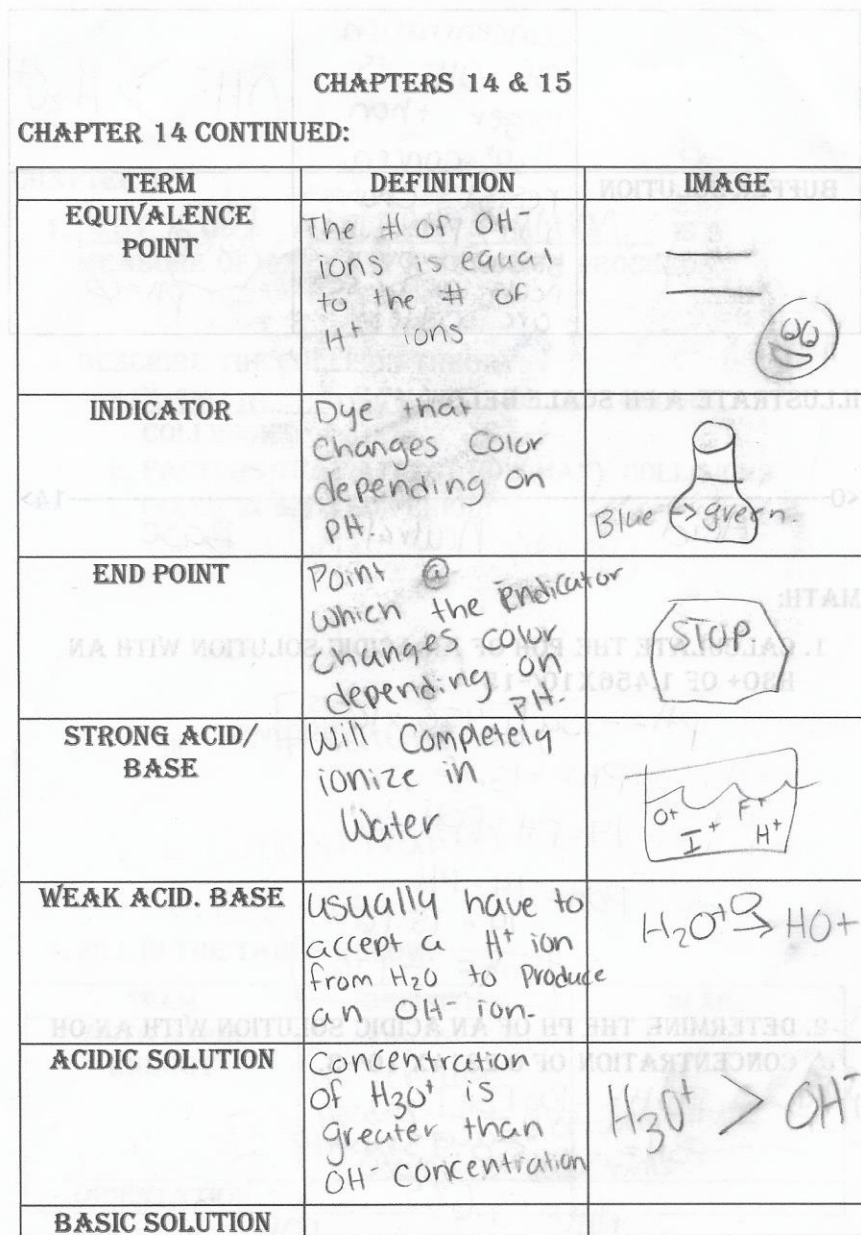 CHAPTERS 14 & 15
CHAPTER 14 CONTINUED:
TERM DEFINITION IMAGE
EQUIVALENCE
POINT
The # of OH-
ions is equal
to the # of
H+ ions
INDICATOR
Dye that
changes color
depending on
pH.
Blue -> green.
END POINT
Point @
which the indicator
changes color
depending on
pH.
STOP
STRONG ACID/
BASE
Will Completely
ionize in
Water
O+ I+ F+ H+
WEAK ACID. BASE
usually have to
accept a H+ ion
from H2O to Produce
an OH- ion.
H2O+ → HO+
ACIDIC SOLUTION
Concentration
of H3O+ is
greater than
OH- concentration
H3O+ > OH-
BASIC SOLUTION